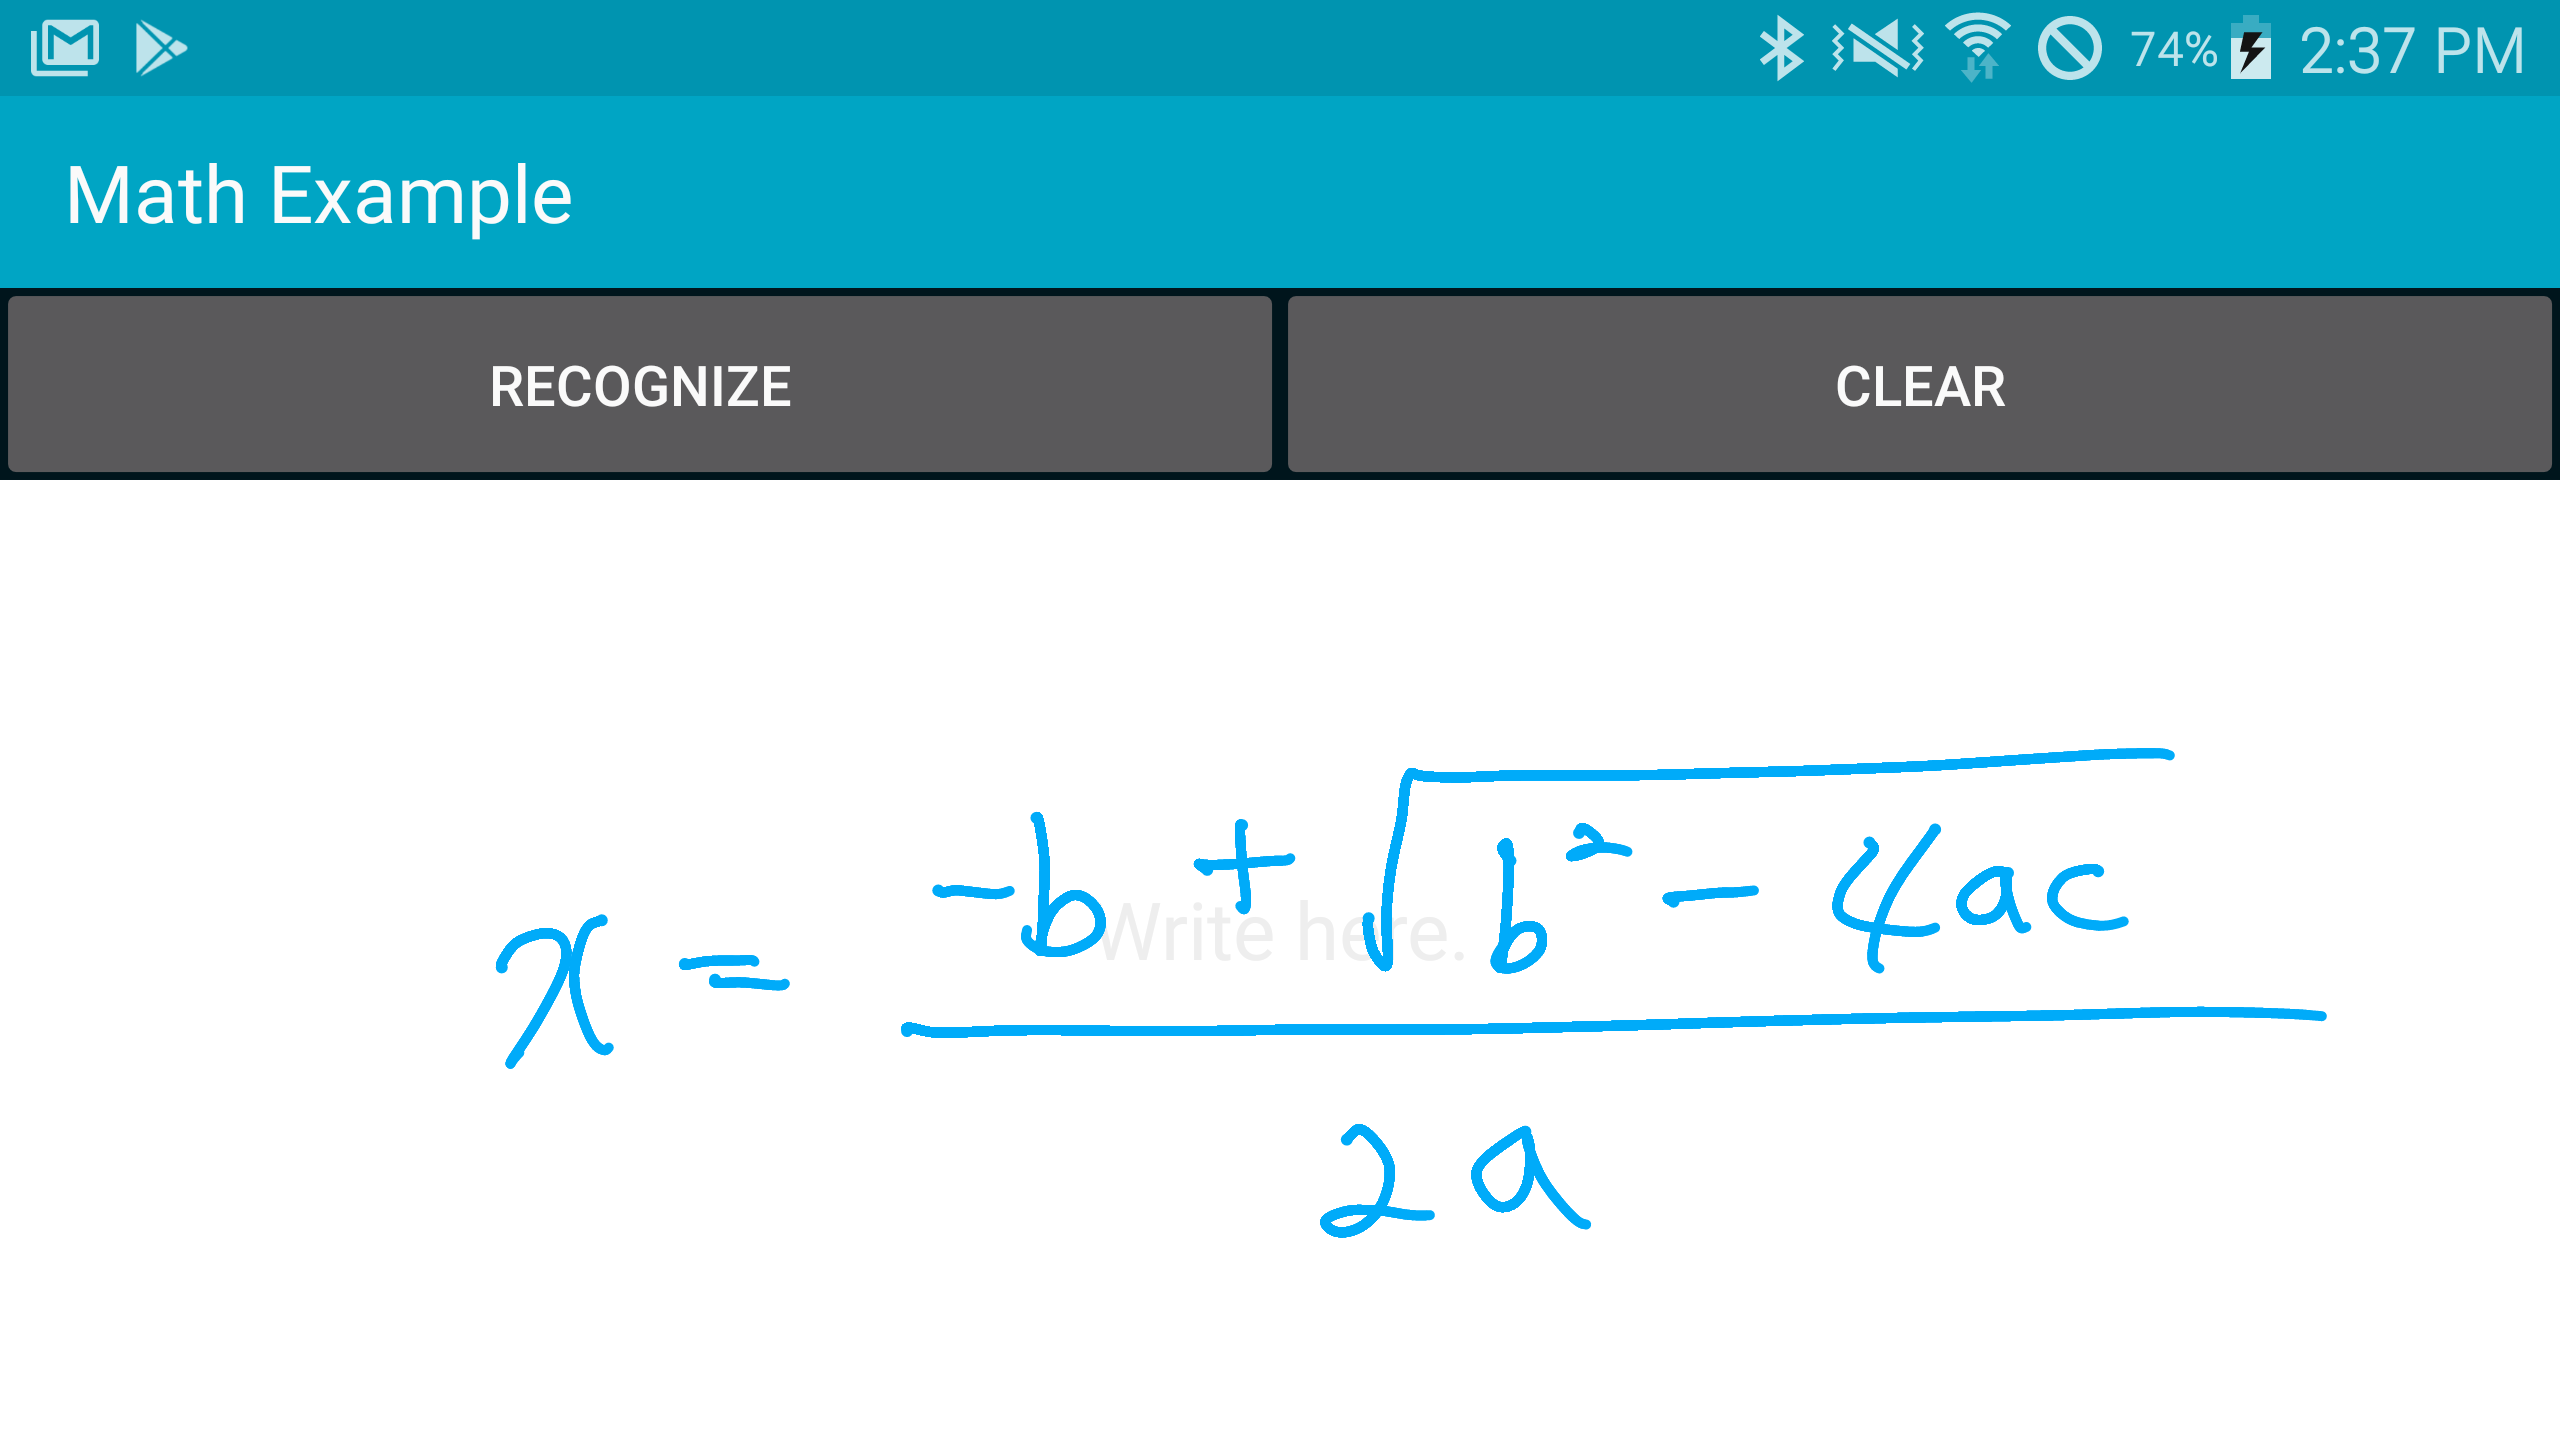 74% 2:37 PM
Math Example
RECOGNIZE CLEAR
Write here.
x = \frac{-b + \sqrt{b^2 - 4ac}}{2a}